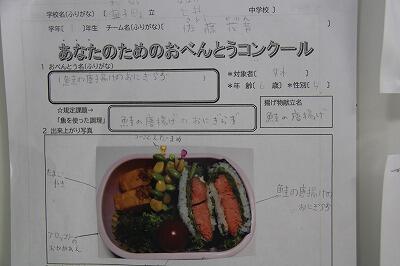 学校名(ふりがな) 立 中学校 〕
学年〔 1 〕年生 チーム名(ふりがな)
あなたのためのおべんとうコンクール
1 おべんとう名(ふりがな)
鮭の唐揚げのおにぎらず
＊対象者〔
＊年 齢〔 歳〕＊性別〔 〕
☆規定課題→
「魚を使った調理」
鮭の唐揚げのおにぎらず
揚げ物献立名
鮭の唐揚げ
2 出来上がり写真
たまご
やき
鮭の唐揚げの
おにぎらず
ブロッコリーの
おかかあえ